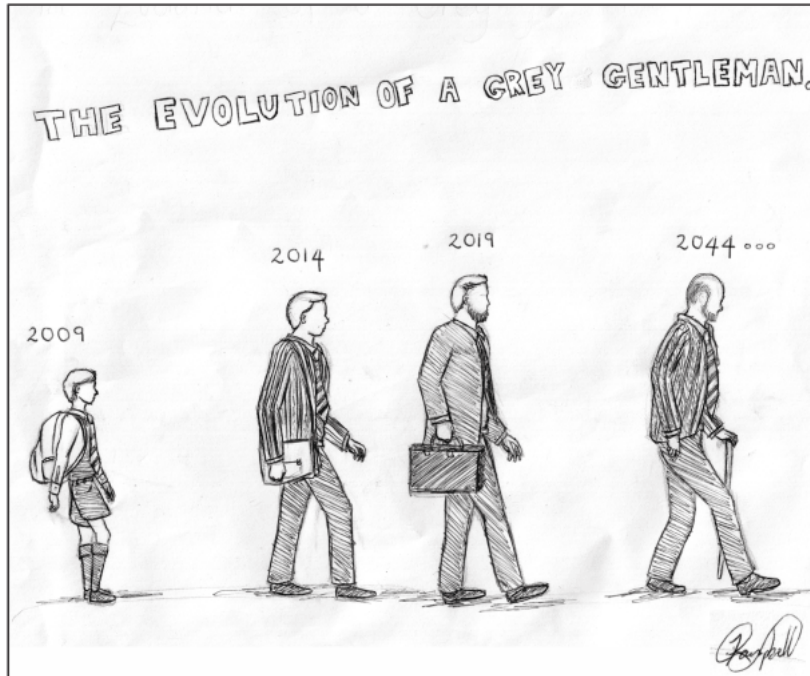 THE EVOLUTION OF A GREY GENTLEMAN.
2009
2014
2019
2044...